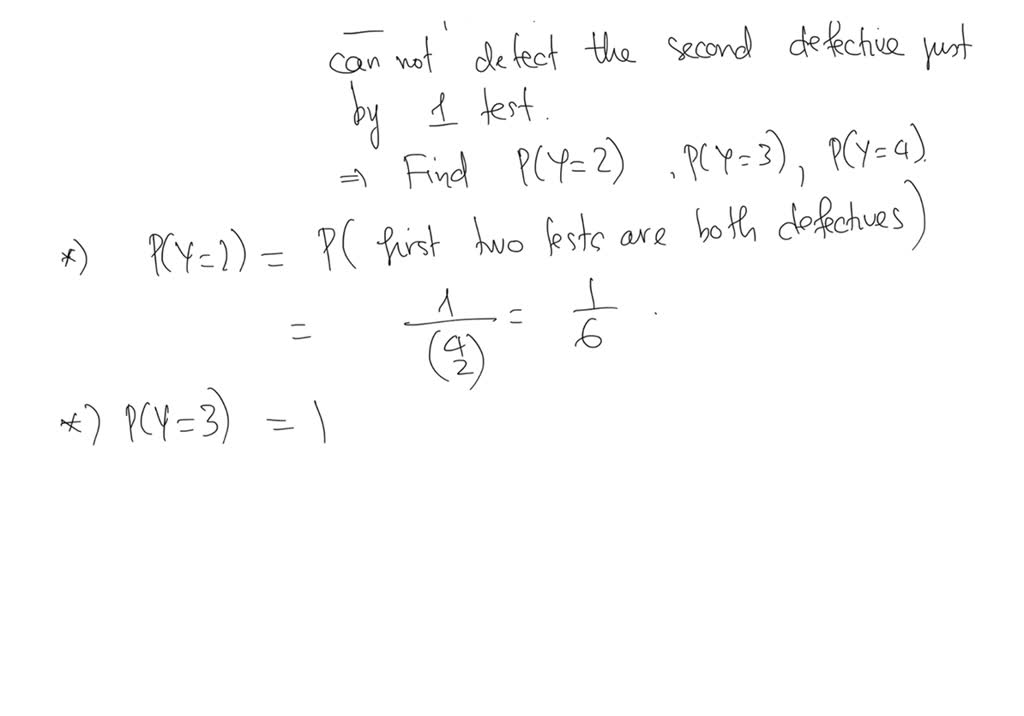 can not detect the second defective just
by 1 test.
⇒ Find P(Y=2) , P(Y=3), P(Y=4).
*) P(Y=2) = P( first two tests are both defectives)
= 1/(4 2) = 1/6 .
*) P(Y=3) = 1